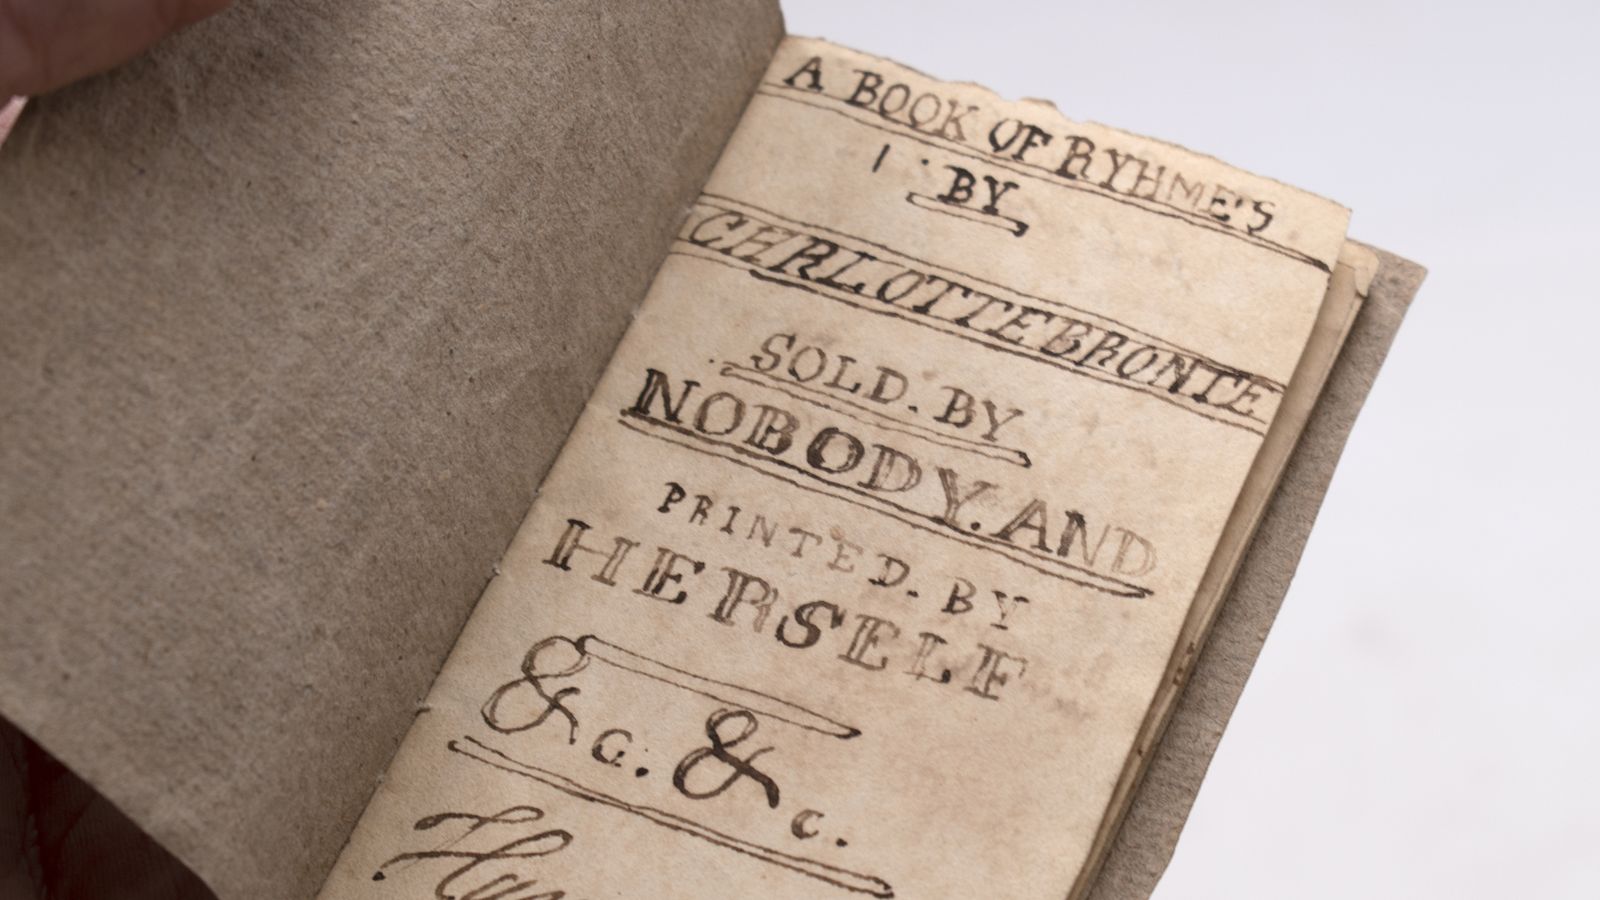 A BOOK OF RYHME'S
BY
CHRLOTTE BRONTE
SOLD. BY
NOBODY. AND
PRINTED. BY
HERSELF
&c. &c.